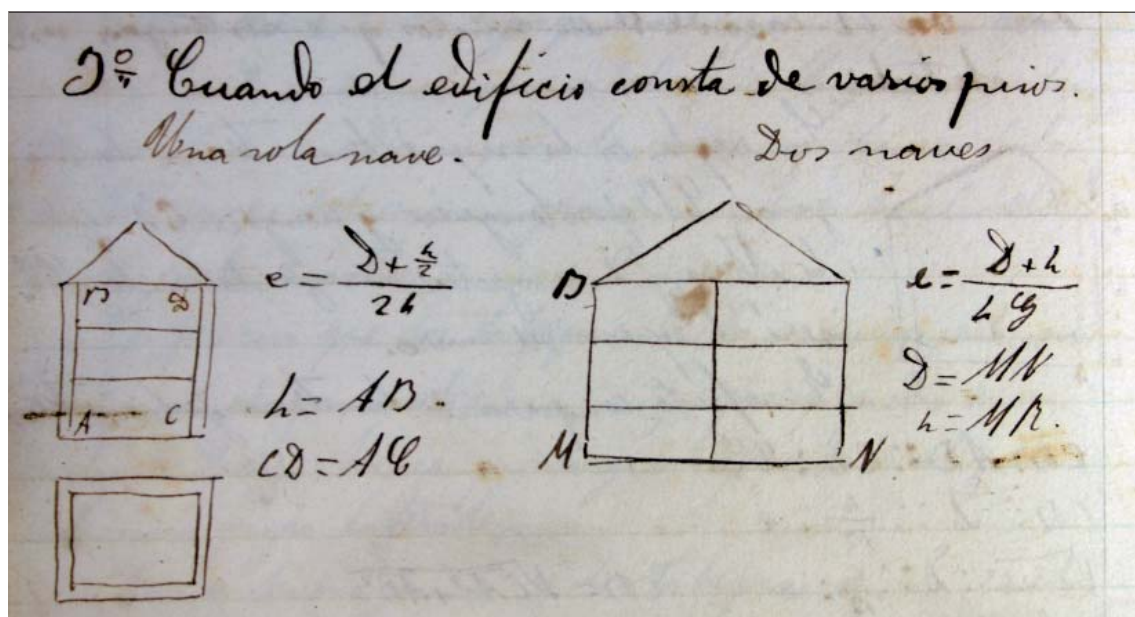 3º Cuando el edificio consta de varios pisos.
Una sola nave.
Dos naves
B D
A C
e = (D + h/2) / 24
h = AB.
CD = AC
B
M N
e = (D + h) / 48
D = MN
h = MB.